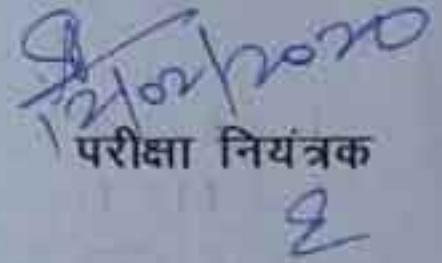 12/02/2020
परीक्षा नियंत्रक